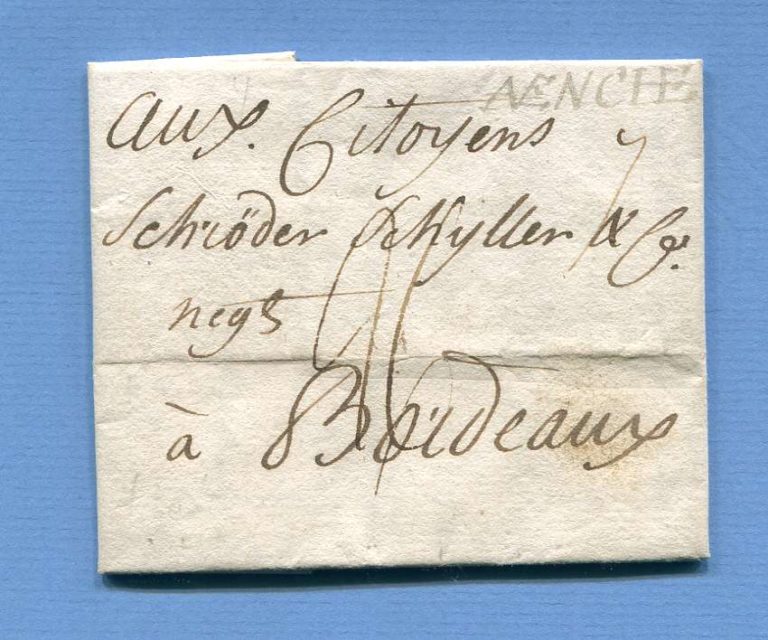 AENCHE
aux. Citoyens
Schröder Schyller & Co.
negts
à Bordeaux